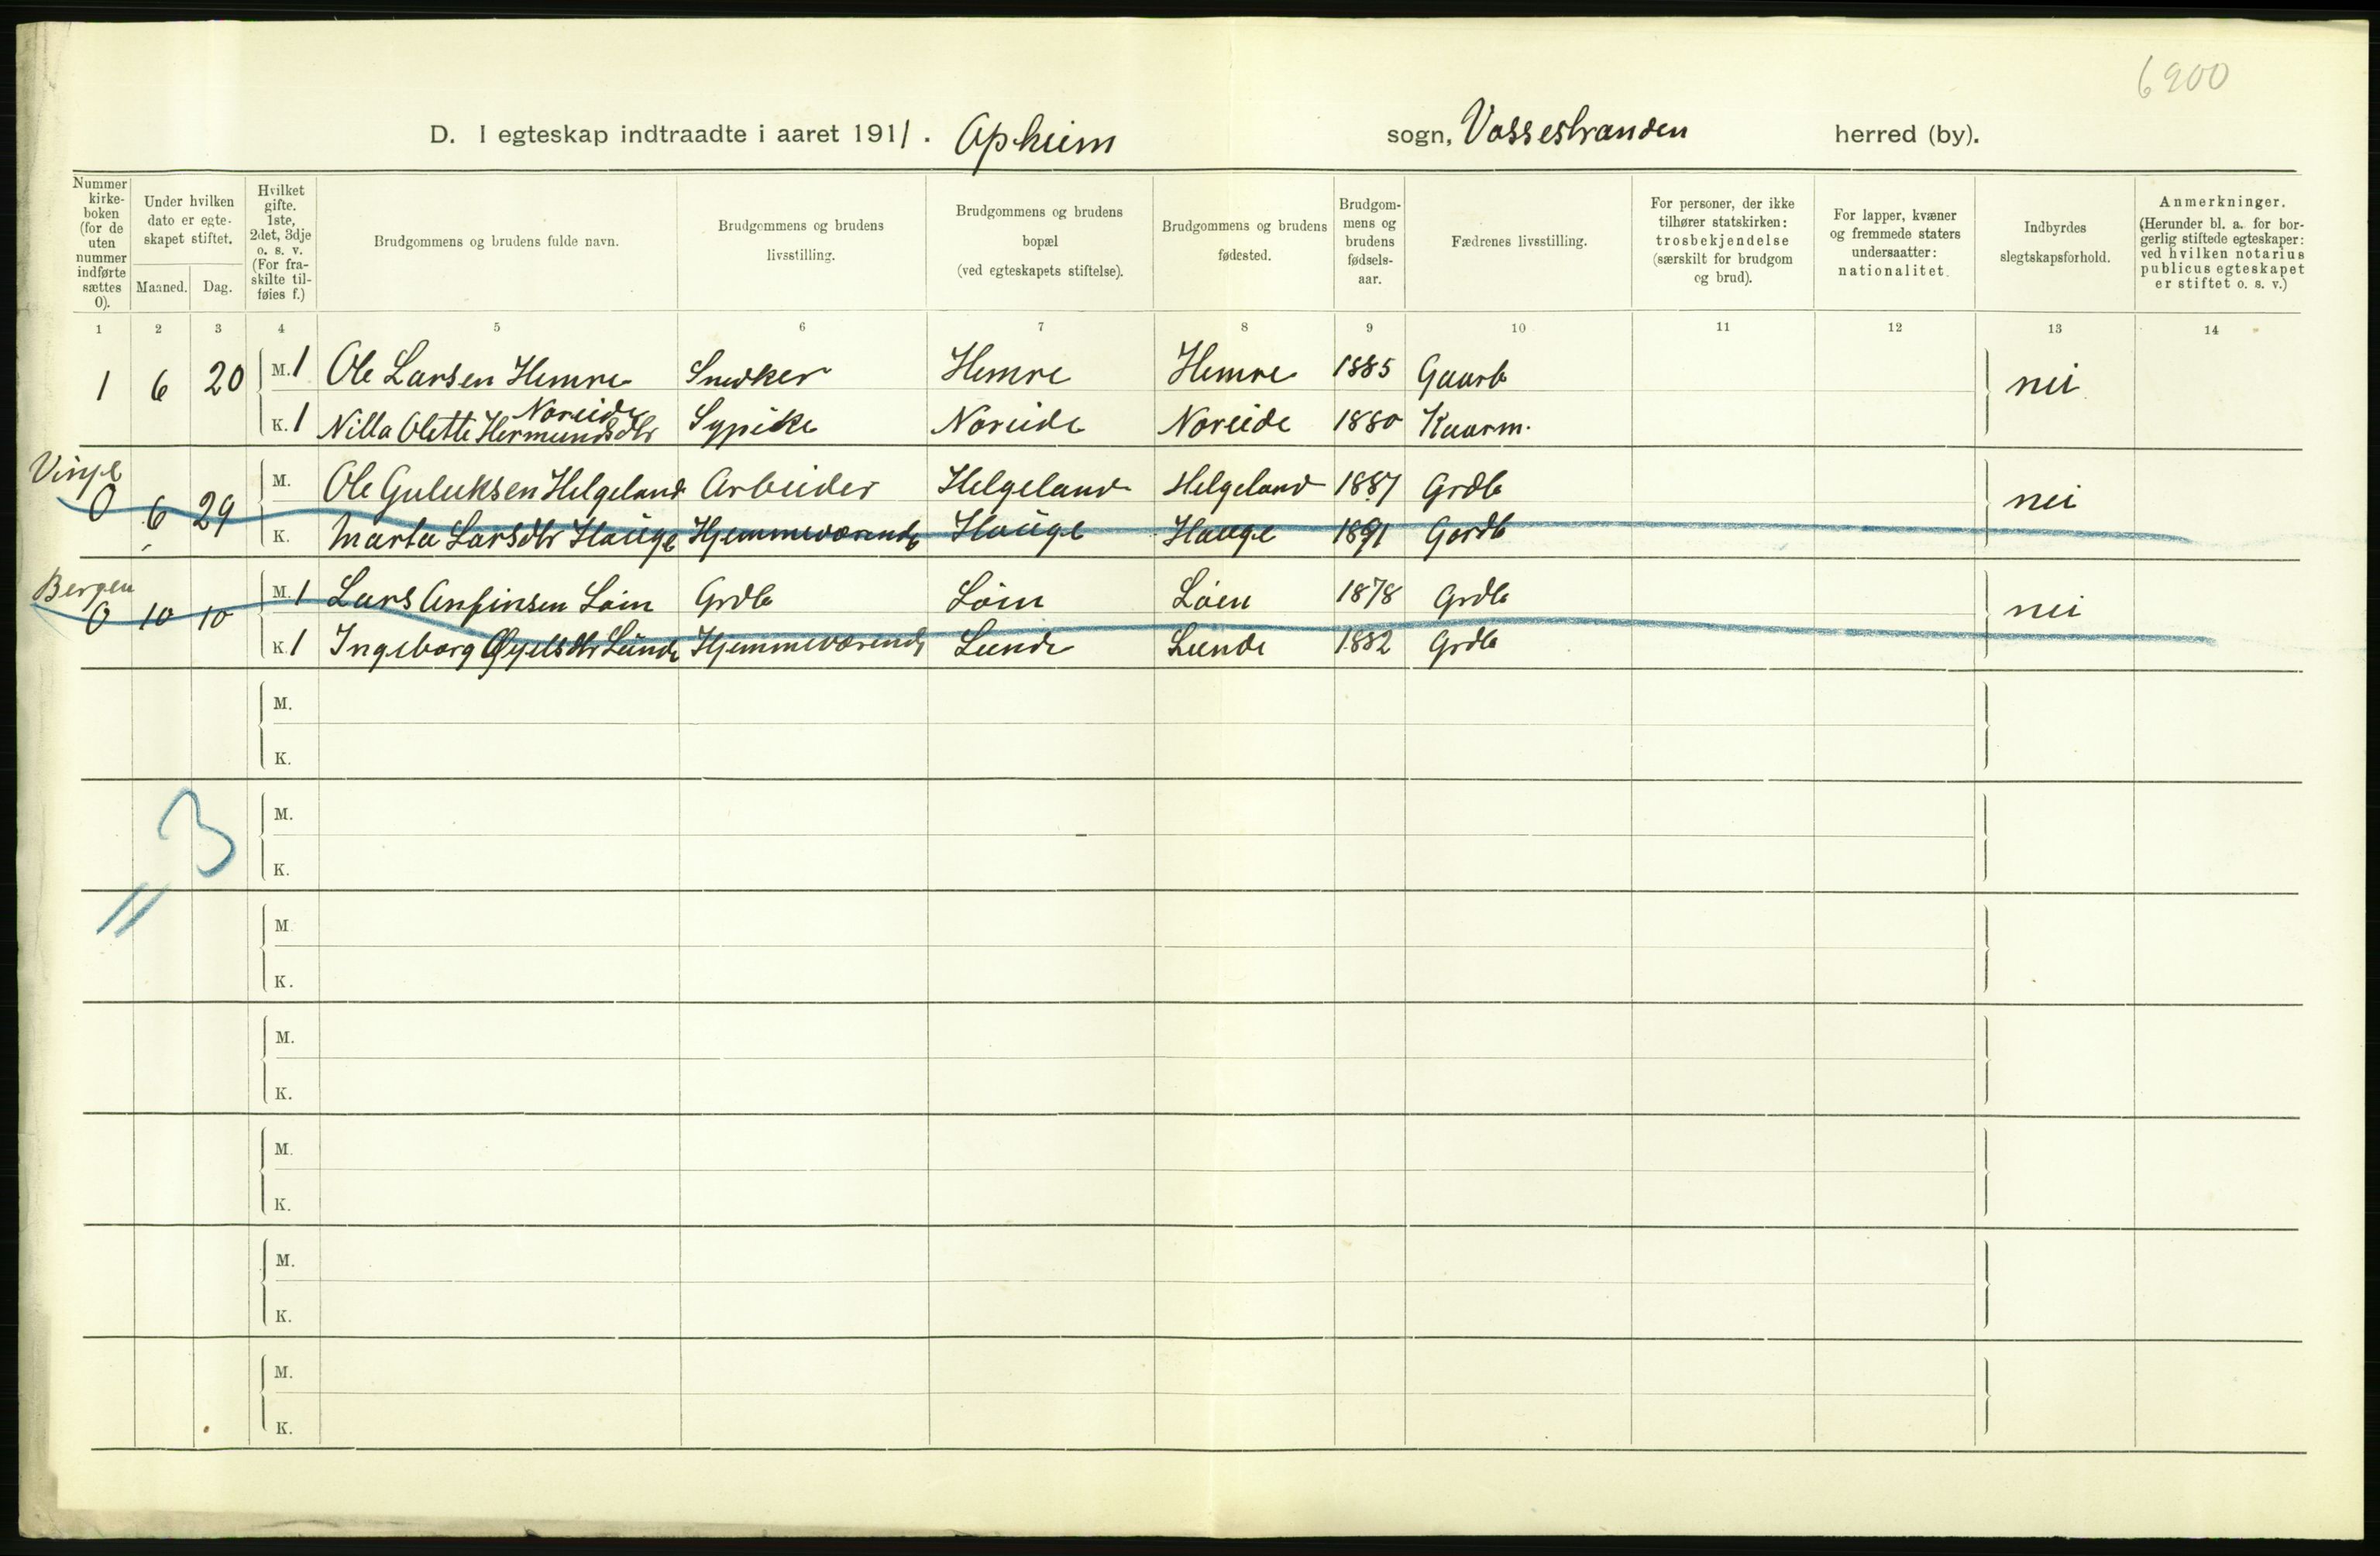 6900
D. I egteskap indtraadte i aaret 1911. Opheim sogn, Vossestranden herred (by).
Nummer kirke-boken (for de uten nummer indførte sættes 0).
Under hvilken dato er egte-skapet stiftet.
Maaned. Dag.
Hvilket gifte. 1ste, 2det, 3dje o. s. v. (For fra-skilte til-føies f.)
Brudgommens og brudens fulde navn.
Brudgommens og brudens livsstilling.
Brudgommens og brudens bopæl (ved egteskapets stiftelse).
Brudgommens og brudens fødested.
Brudgom-mens og brudens fødsels-aar.
Fædrenes livsstilling.
For personer, der ikke tilhører statskirken: trosbekjendelse (særskilt for brudgom og brud).
For lapper, kvæner og fremmede staters undersaatter: nationalitet.
Indbyrdes slegtskapsforhold.
Anmerkninger. (Herunder bl. a. for bor-gerlig stiftede egteskaper: ved hvilken notarius publicus egteskapet er stiftet o. s. v.)
1 2 3 4 5 6 7 8 9 10 11 12 13 14
1 6 20 M. 1 Ole Larsen Hemre Snedker Hemre Hemre 1885 Gaarb nei
Noreide
K. 1 Nilla Olette Hermundsdtr Sypike Noreide Noreide 1880 Kaarm.
Vinje
0 6 29 M. Ole Guluksen Helgeland Arbeider Helgeland Helgeland 1887 Grdb nei
K. Marta Larsdtr Hauge Hjemmeværende Hauge Hauge 1891 Gardb
Bergen
0 10 10 M. 1 Lars Anfinsen Løin Grdb Løin Løen 1878 Grdb nei
K. 1 Ingeborg Øyelsdtr Lunde Hjemmeværende Lunde Lunde 1882 Grdb
M.
K.
3
M.
K.
M.
K.
M.
K.
M.
K.
M.
K.
M.
K.